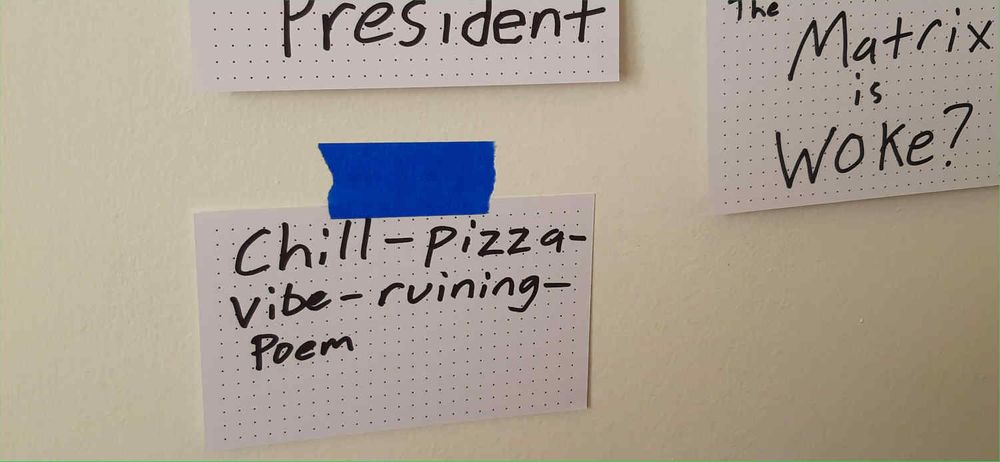 President
The
Matrix
is
Woke?
Chill-pizza-
vibe-ruining-
Poem